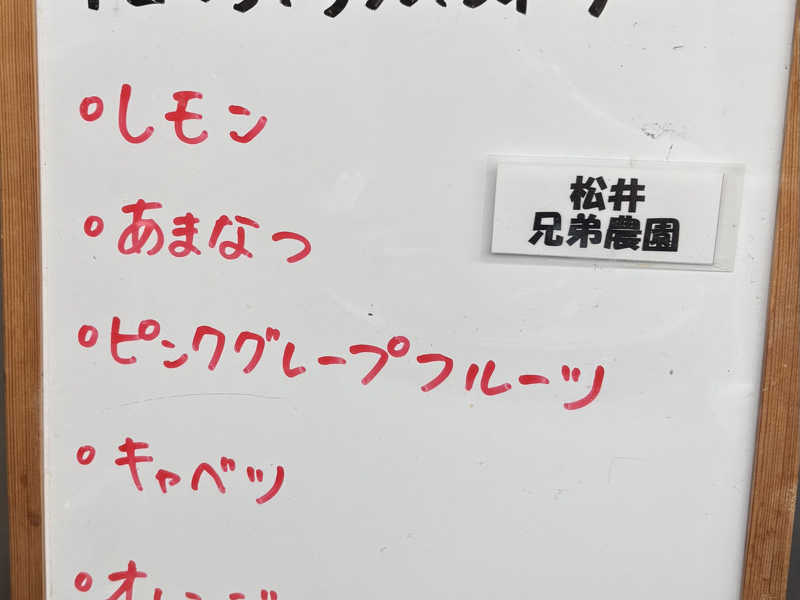 レモン
あまなつ
ピンクグレープフルーツ
キャベツ
オレンジ
松井
兄弟農園